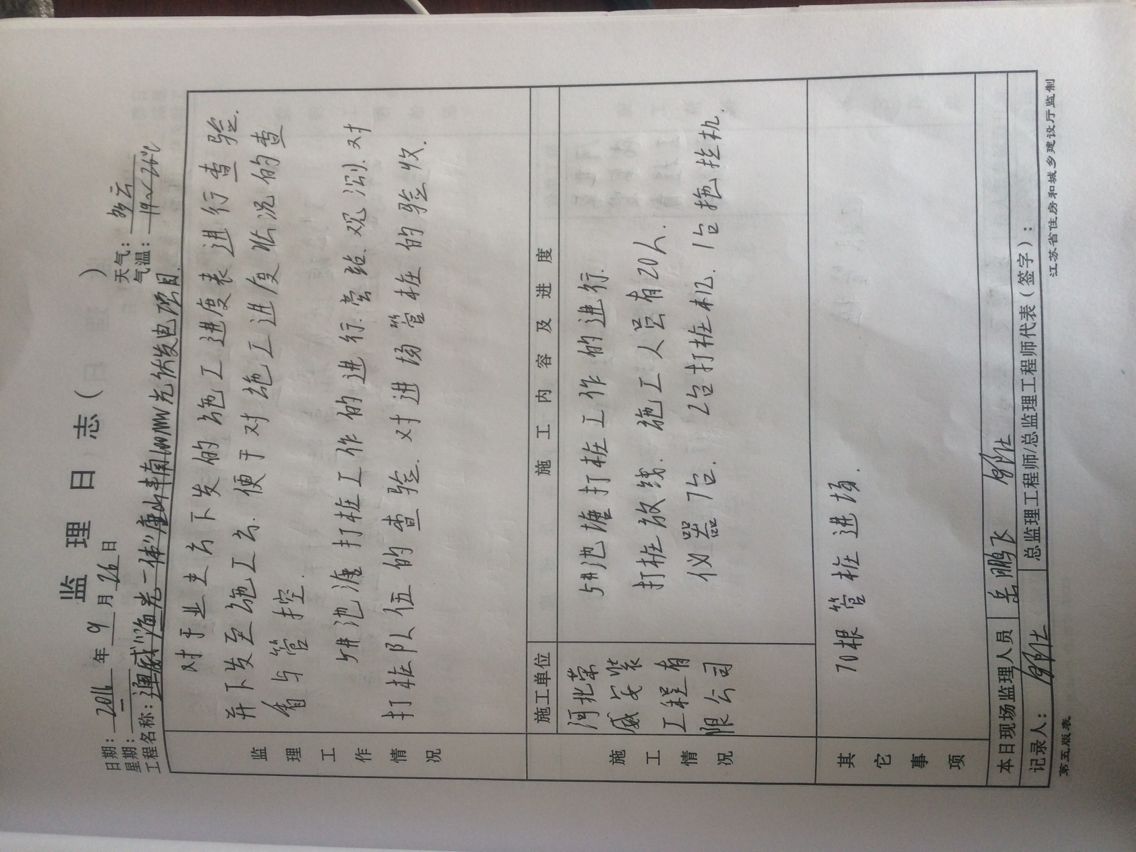 监理日志（ ）
日期：2016年9月26日 天气：多云
星期：一 气温：19～26℃
工程名称：通威"渔光一体"唐山丰南 光伏发电项目.
监理工作情况
对于业主方下发的施工进度表进行查验.
并下发至施工方.便于对施工进度状况的查
看与管控.
5#池塘打桩工作的进行.旁站.观测.对
打桩队伍的查验.对进场管桩的验收.
施工情况
施工单位 施工内容及进度
河北荣
威安装
工程有
限公司
5#池塘打桩工作的进行.
打桩放线.施工人员有20人.
仪器7台. 2台打桩机. 1台拖拉机.
其它事项
70根管桩进场.
本日现场监理人员 岳鹏飞
记录人： 总监理工程师/总监理工程师代表（签字）：
第五版表 江苏省住房和城乡建设厅监制